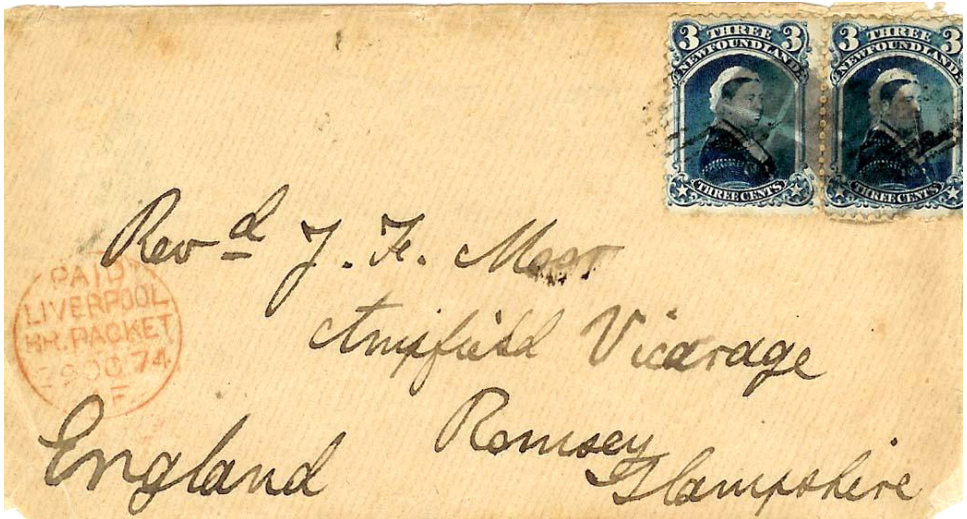 3 THREE 3
NEWFOUNDLAND.
THREE CENTS
3 THREE 3
NEWFOUNDLAND.
THREE CENTS
Revd J. F. Moor
PAID
LIVERPOOL
BR. PACKET
29 OC 74
Ampfield Vicarage
Romsey
England Hampshire